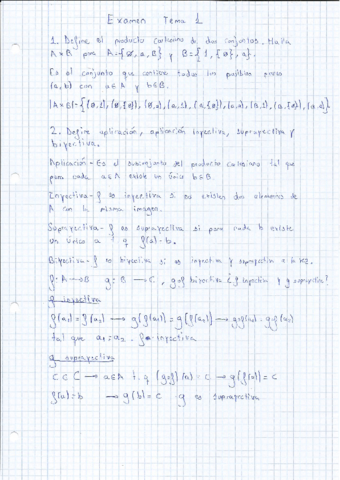 Examen Tema 1
1. Define el producto cartesiano de dos conjuntos. Halla
A×B para A={∅, a, B} y B={1, {∅}, a}.
Es el conjunto que contiene todos los posibles pares
(a,b) con a∈A y b∈B.
2. Define aplicación, aplicación inyectiva, suprayectiva y
biyectiva.
Aplicación - Es el subconjunto del producto cartesiano tal que
para cada a∈A existe un único b∈B.
Inyectiva - f es inyectiva si no existen dos elementos de
A con la misma imagen.
Suprayectiva - f es suprayectiva si para cada b existe
un único a t.q f(a)=b.
Biyectiva - f es biyectiva si es inyectiva y suprayectiva a la vez.
f: A→B g: B→C, g∘f biyectiva ¿f inyectiva y g suprayectiva?
f inyectiva
f(a₁)=f(a₂) → g(f(a₁))=g(f(a₂)) → g∘f(a₁)=g∘f(a₂)
tal que a₁=a₂. f es inyectiva
g suprayectiva
c∈C → a∈A t.q (g∘f)(a)=c → g(f(a))=c
f(a)=b → g(b)=c g es suprayectiva